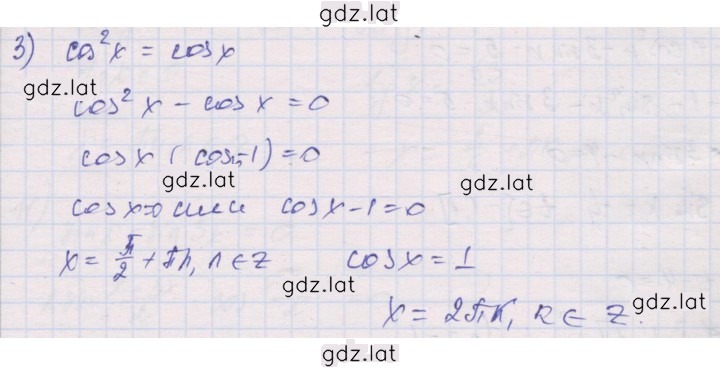 gdz.lat
3) cos²x = cosx
gdz.lat
cos²x - cosx = 0
cosx (cosx-1)=0
gdz.lat
gdz.lat
cosx=0 или cosx-1=0
x = π/2 + πn, n ∈ Z cosx = 1
gdz.lat
x = 2πk, k ∈ Z.
gdz.lat
gdz.lat